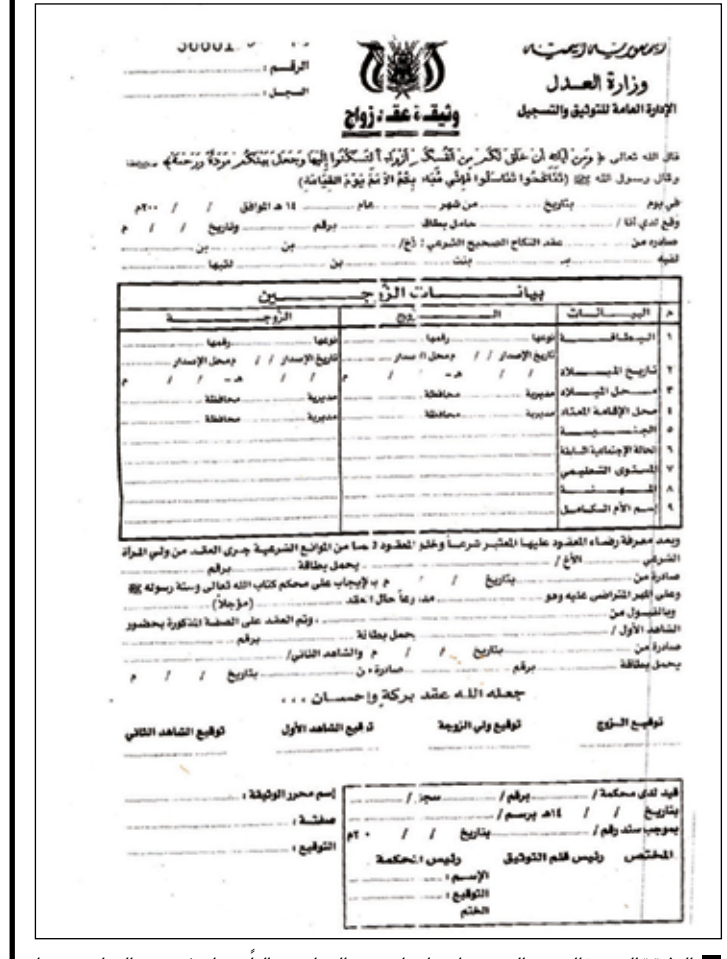 الجمهورية اليمنية
وزارة العـدل
الإدارة العامة للتوثيق والتسجيل
وثيقـة عقـد زواج
الرقـم :
السجـل :
قال الله تعالى ﴿ ومن آياته أن خلق لكم من أنفسكم أزواجاً لتسكنوا إليها وجعل بينكم مودة ورحمة ﴾
وقال رسول الله ﷺ (تناكحوا تناسلوا فإني مباه بكم الأمم يوم القيامة)
في يوم بتاريخ من شهر عام ١٤ هـ الموافق / / ٢٠٠م
وقع لدي أنا / حامل بطاقة برقم وتاريخ / / م
صادره من عقد النكاح الصحيح الشرعي : للأخ/ بن بن
لقبه بـ بنت بن لقبها
بيانـــات الزوجـــين
م البيـــانـــات الـــزوج الزوجـــة
١ البـطاقـــة نوعها رقمها نوعها رقمها
تاريخ الإصدار / / ومحل الإصدار تاريخ الإصدار / / ومحل الإصدار
٢ تـاريـخ المـيـــلاد / / هـ - / / م / / هـ - / / م
٣ مـحـل المـيـــلاد مديرية محافظة مديرية محافظة
٤ محل الإقامة المعتاد مديرية محافظة مديرية محافظة
٥ الجـنـسـيـــة
٦ الحالة الإجتماعية السابقة
٧ المستوى التعليمي
٨ المـهـنـــة
٩ إسـم الأم الـكـامـل
وبعد معرفة رضاء المعقود عليها المعتبر شرعـاً وخلو المعقود لهما من الموانع الشرعية جرى العقد من ولي المرأة
الشرعي الأخ / يحمل بطاقة برقم
صادرة من بتاريخ / / م بالإيجاب على محكم كتاب الله تعالى وسنة رسوله ﷺ
وعلى المهر المتراضى عليه وهو مدفوعاً حال العقد (مؤجلاً)
وبالقبول من ، وتم العقد على الصفة المذكورة بحضور
الشاهد الأول / يحمل بطاقة برقم
صادرة من بتاريخ / / م والشاهد الثاني/
يحمل بطاقة برقم صادرة من بتاريخ / / م
جعله الله عقد بركة وإحسـان ...
توقيـع الـزوج توقيع ولي الزوجة توقيع الشاهد الأول توقيع الشاهد الثاني
قيد لدى محكمة / برقم / سجل /
بتاريخ / / ١٤هـ برسم /
بموجب سند رقم / بتاريخ / / ٢٠م
المختص رئيس قلم التوثيق رئيس المحكمة
الإسـم :
التوقيع :
الختم
إسم محرر الوثيقة :
صفتـه :
التوقيع :